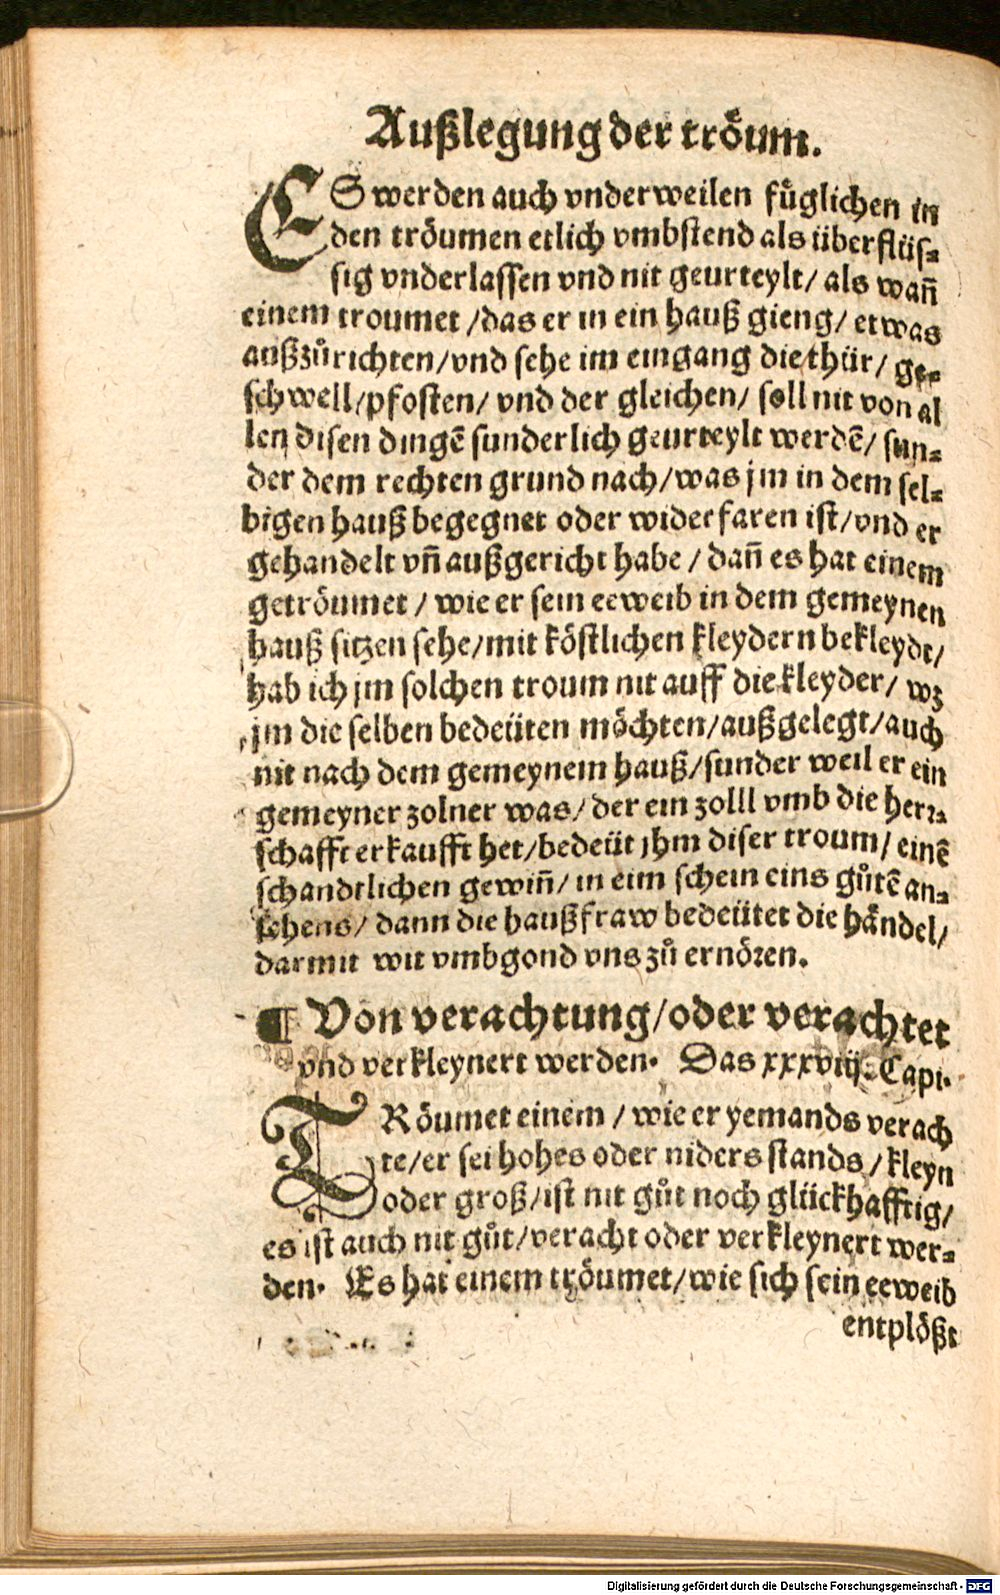 Außlegung der tröum.
ES werden auch vnderweilen füglichen in
den tröumen etlich vmbstend als überflüs-
sig vnderlassen vnd nit geurteylt/ als wañ
einem troumet /das er in ein hauß gieng/ etwas
außzůrichten/vnd sehe im eingang die thür/ ge-
schwell/pfosten/ vnd der gleichen/ soll nit von al
len disen dingẽ sunderlich geurteylt werdẽ/ sun-
der dem rechten grund nach/was jm in dem sel-
bigen hauß begegnet oder widerfaren ist/vnd er
gehandelt vñ außgericht habe / dañ es hat einem
getröumet / wie er sein eeweib in dem gemeynen
hauß sitzen sehe/mit köstlichen kleydern bekleydt/
hab ich jm solchen troum nit auff die kleyder/ wz
jm die selben bedeüten möchten/außgelegt/auch
nit nach dem gemeynem hauß/sunder weil er ein
gemeyner zolner was/ der ein zolll vmb die herr-
schafft erkaufft het/bedeüt jhm diser troum/ einẽ
schandtlichen gewiñ/ in eim schein eins gůtẽ an-
sehens/ dann die haußfraw bedeütet die händel/
darmit wir vmbgond vns zů ernören.
¶ Von verachtung/oder verachtet
vnd verkleynert werden. Das xxxviij. Capi.
TRöumet einem / wie er yemands verach
te/er sei hohes oder niders stands /kleyn
oder groß/ist nit gůt noch glückhafftig/
es ist auch nit gůt/veracht oder verkleynert wer-
den. Es hat einem tröumet/wie sich sein eeweib
entplößt
Digitalisierung gefördert durch die Deutsche Forschungsgemeinschaft - DFG